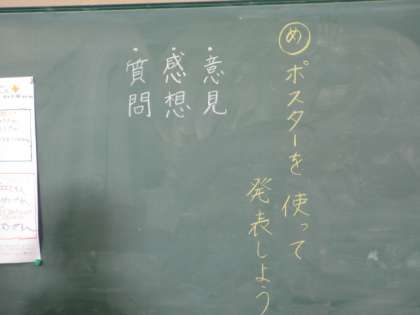 め ポスターを使って
発表しよう
・意見
・感想
・質問